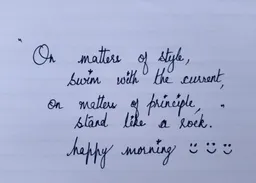 " On matters of style,
swim with the current,
on matters of principle, "
stand like a rock.
happy morning :) :) :)